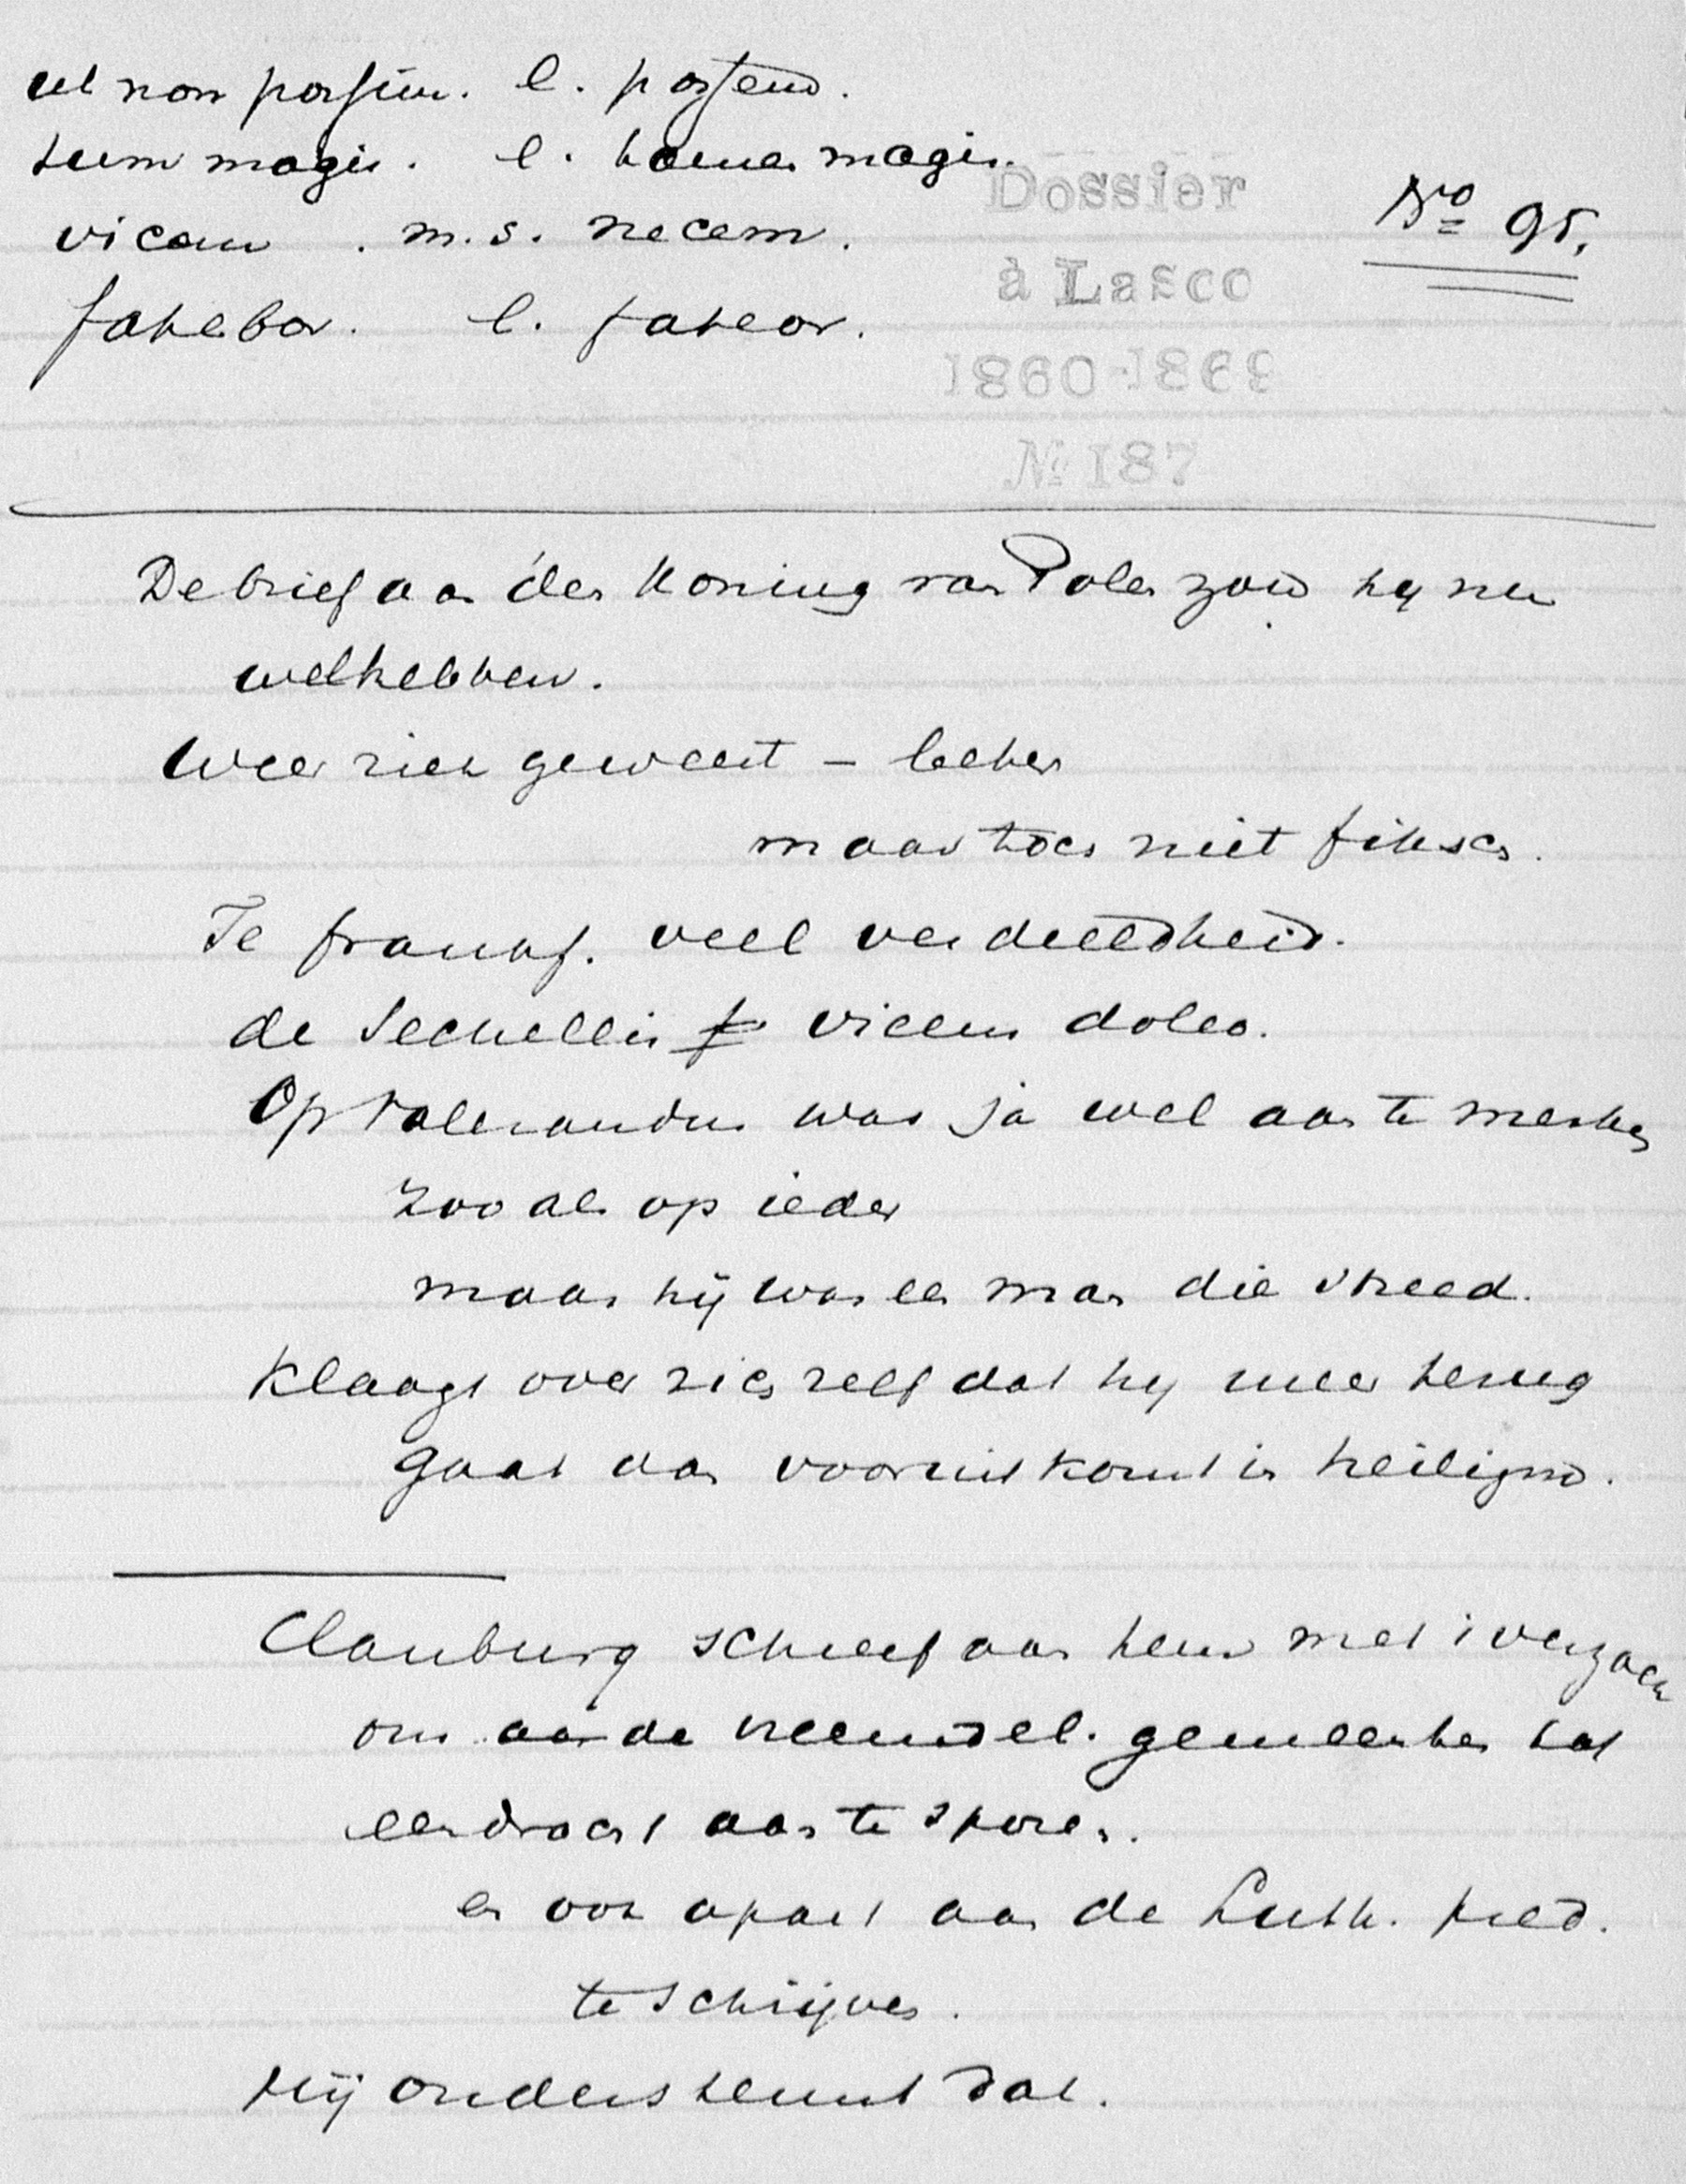 ut non possim. l. possem.
tum magis. l. tamen magis.
vicem. m.s. necem.
fatebor. l. fateor.
Dossier
à Lasco
1860-1869
№ 187
No 95.
De brief aan den Koning van Polen zou hij nu
wel hebben.
Weer ziek geweest – beter
maar toch niet fiksch.
Te francf. veel verdeeldheid.
de Sechellis vicem doleo.
Op Valerandus was ja wel aan te merken
zooals op ieder
maar hij was een man die vreed.
Klaagt over zich zelf dat hij meer terug
gaat dan vooruitkomt in heiligmd.
Clauburg schreef aan hem met verzoek
om aan de vreemdel. gemeenten tot
eendracht aan te sporen.
en ook apart aan de Luth. pred.
te schrijven.
Hij ondersteunt dat.